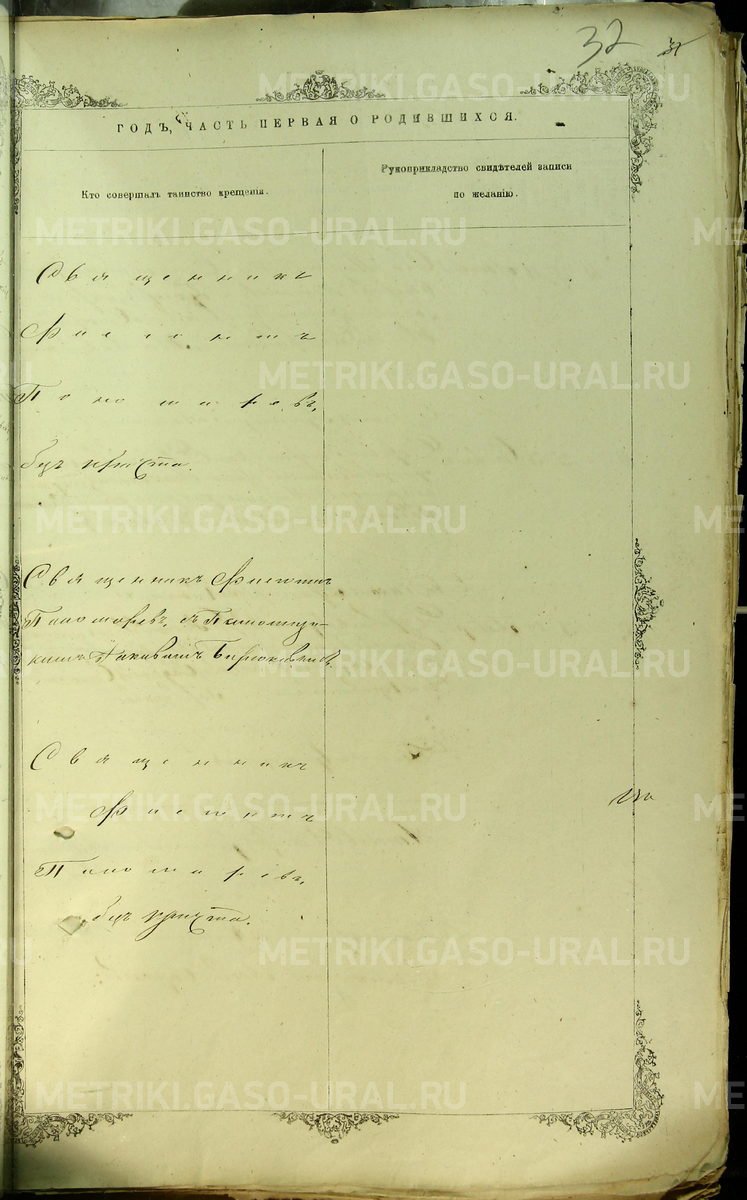 32
ГОДЪ, ЧАСТЬ ПЕРВАЯ О РОДИВШИХСЯ.
Кто совершалъ таинство крещенія.
Рукоприкладство свидѣтелей записи
по желанію.
Священникъ
Филетъ
Пономаревъ,
безъ причта.
Священникъ
Пономаревъ, съ
Священникъ
Пономаревъ,
безъ причта.
METRIKI.GASO-URAL.RU
METRIKI.GASO-URAL.RU
METRIKI.GASO-URAL.RU
METRIKI.GASO-URAL.RU
METRIKI.GASO-URAL.RU
METRIKI.GASO-URAL.RU
METRIKI.GASO-URAL.RU
METRIKI.GASO-URAL.RU